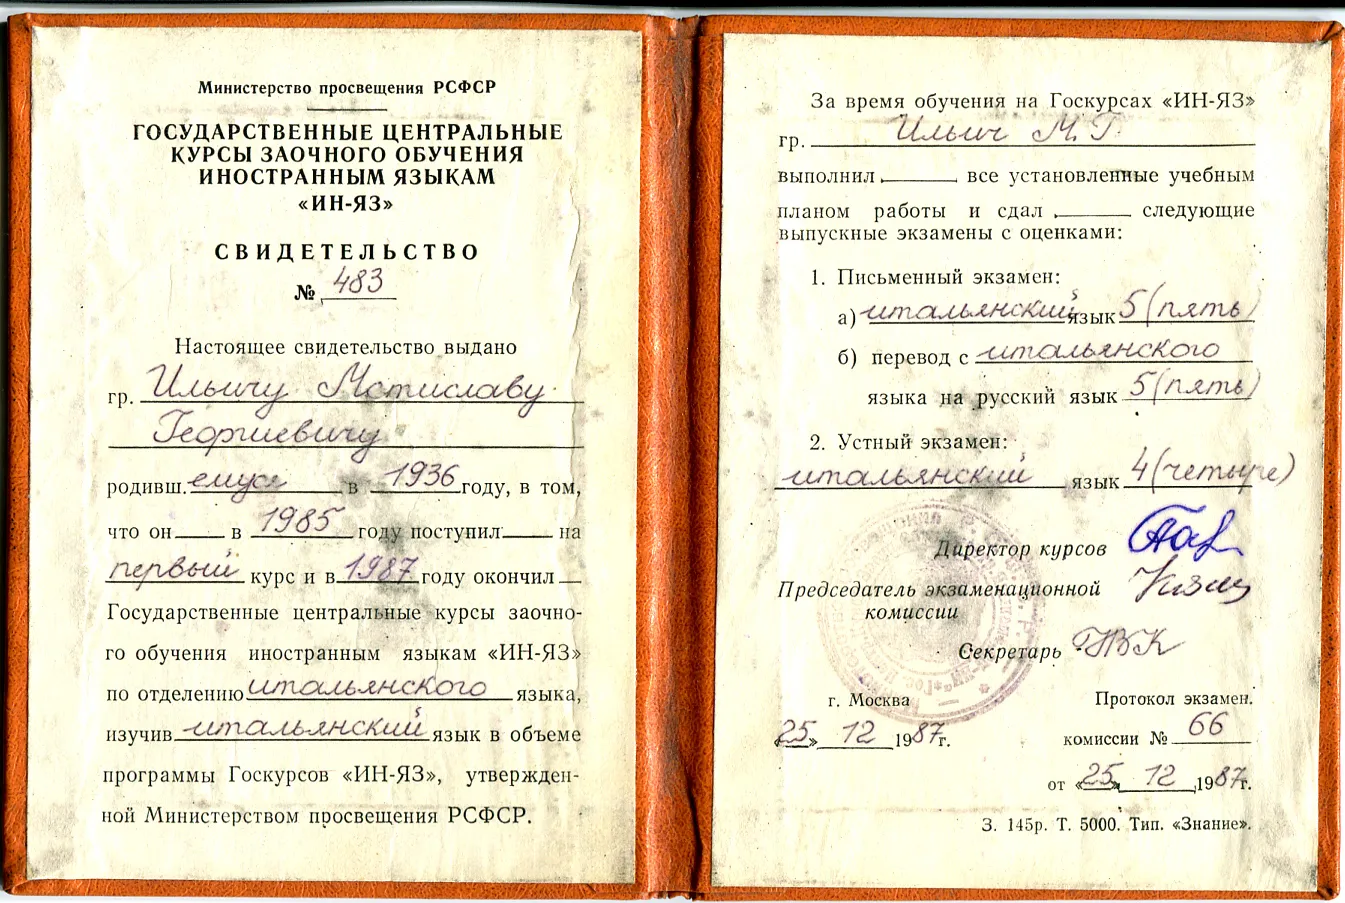 Министерство просвещения РСФСР
ГОСУДАРСТВЕННЫЕ ЦЕНТРАЛЬНЫЕ
КУРСЫ ЗАОЧНОГО ОБУЧЕНИЯ
ИНОСТРАННЫМ ЯЗЫКАМ
«ИН-ЯЗ»
СВИДЕТЕЛЬСТВО
№ 483
Настоящее свидетельство выдано
гр. Ильичу Мстиславу
Георгиевичу
родивш. емуся в 1936 году, в том,
что он в 1985 году поступил на
первый курс и в 1987 году окончил
Государственные центральные курсы заочно-
го обучения иностранным языкам «ИН-ЯЗ»
по отделению итальянского языка,
изучив итальянский язык в объеме
программы Госкурсов «ИН-ЯЗ», утвержден-
ной Министерством просвещения РСФСР.
За время обучения на Госкурсах «ИН-ЯЗ»
гр. Ильич М.Г.
выполнил все установленные учебным
планом работы и сдал следующие
выпускные экзамены с оценками:
1. Письменный экзамен:
а) итальянский язык 5 (пять)
б) перевод с итальянского
языка на русский язык 5 (пять)
2. Устный экзамен:
итальянский язык 4 (четыре)
Директор курсов
Председатель экзаменационной
комиссии
Секретарь
г. Москва
«25» 12 1987г.
Протокол экзамен.
комиссии № 66
от «25» 12 1987г.
З. 145р. Т. 5000. Тип. «Знание».